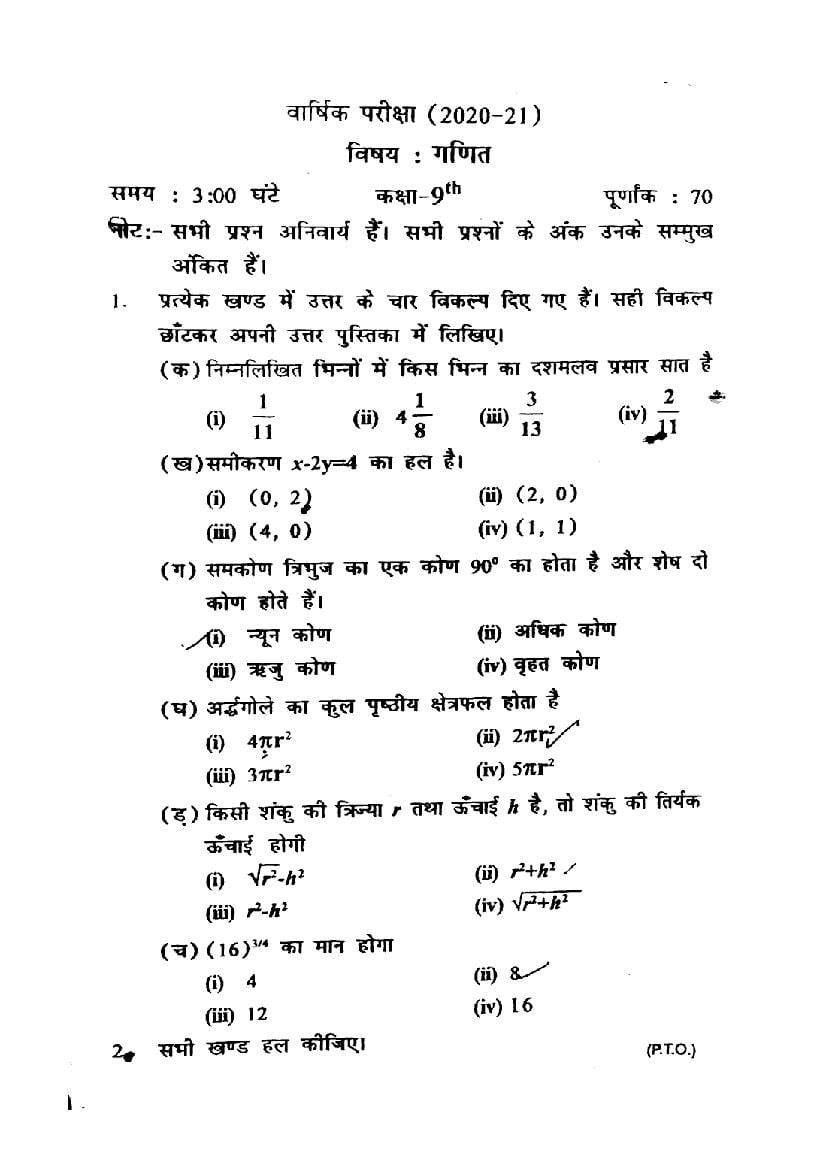 वार्षिक परीक्षा (2020-21)
विषय : गणित
समय : 3:00 घंटे कक्षा-9th पूर्णांक : 70
नोट:- सभी प्रश्न अनिवार्य हैं। सभी प्रश्नों के अंक उनके सम्मुख
अंकित हैं।
1. प्रत्येक खण्ड में उत्तर के चार विकल्प दिए गए हैं। सही विकल्प
छाँटकर अपनी उत्तर पुस्तिका में लिखिए।
(क) निम्नलिखित भिन्नों में किस भिन्न का दशमलव प्रसार सात है
(i) 1/11 (ii) 4 1/8 (iii) 3/13 (iv) 2/11
(ख) समीकरण x-2y=4 का हल है।
(i) (0, 2) (ii) (2, 0)
(iii) (4, 0) (iv) (1, 1)
(ग) समकोण त्रिभुज का एक कोण 90° का होता है और शेष दो
कोण होते हैं।
(i) न्यून कोण (ii) अधिक कोण
(iii) ऋजु कोण (iv) वृहत कोण
(घ) अर्द्धगोले का कुल पृष्ठीय क्षेत्रफल होता है
(i) 4πr² (ii) 2πr²
(iii) 3πr² (iv) 5πr²
(ड़) किसी शंकु की त्रिज्या r तथा ऊँचाई h है, तो शंकु की तिर्यक
ऊँचाई होगी
(i) √r²-h² (ii) r²+h²
(iii) r²-h² (iv) √r²+h²
(च) (16)³/⁴ का मान होगा
(i) 4 (ii) 8
(iii) 12 (iv) 16
2. सभी खण्ड हल कीजिए।
(P.T.O.)
1